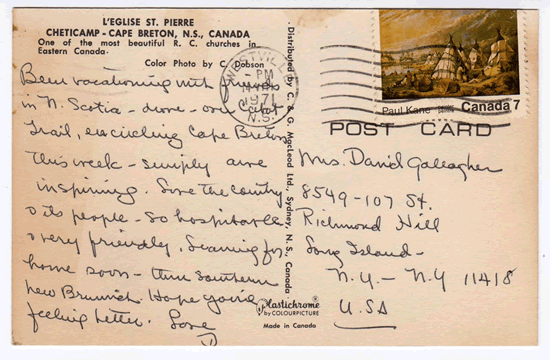 L'EGLISE ST. PIERRE
CHETICAMP - CAPE BRETON, N.S., CANADA
One of the most beautiful R. C. churches in
Eastern Canada.
Color Photo by C. Dobson
Been vacationing with friends
in N. Scotia - drove over Cabot
Trail, encircling Cape Breton
this week - simply awe
inspiring. Love the country
& its people - so hospitable
& very friendly. Leaving for
home soon - thru southern
New Brunswick. Hope you're
feeling better. Love
Distributed by C. & G. MacLeod Ltd., Sydney, N. S., Canada
Plastichrome®
by COLOURPICTURE
Made in Canada
PM
1971
N.S.
Paul Kane
Canada 7
POST CARD
Mrs. David Gallagher
8549-107 St.
Richmond Hill
Long Island -
N.Y. - N.Y 11418
U.S.A